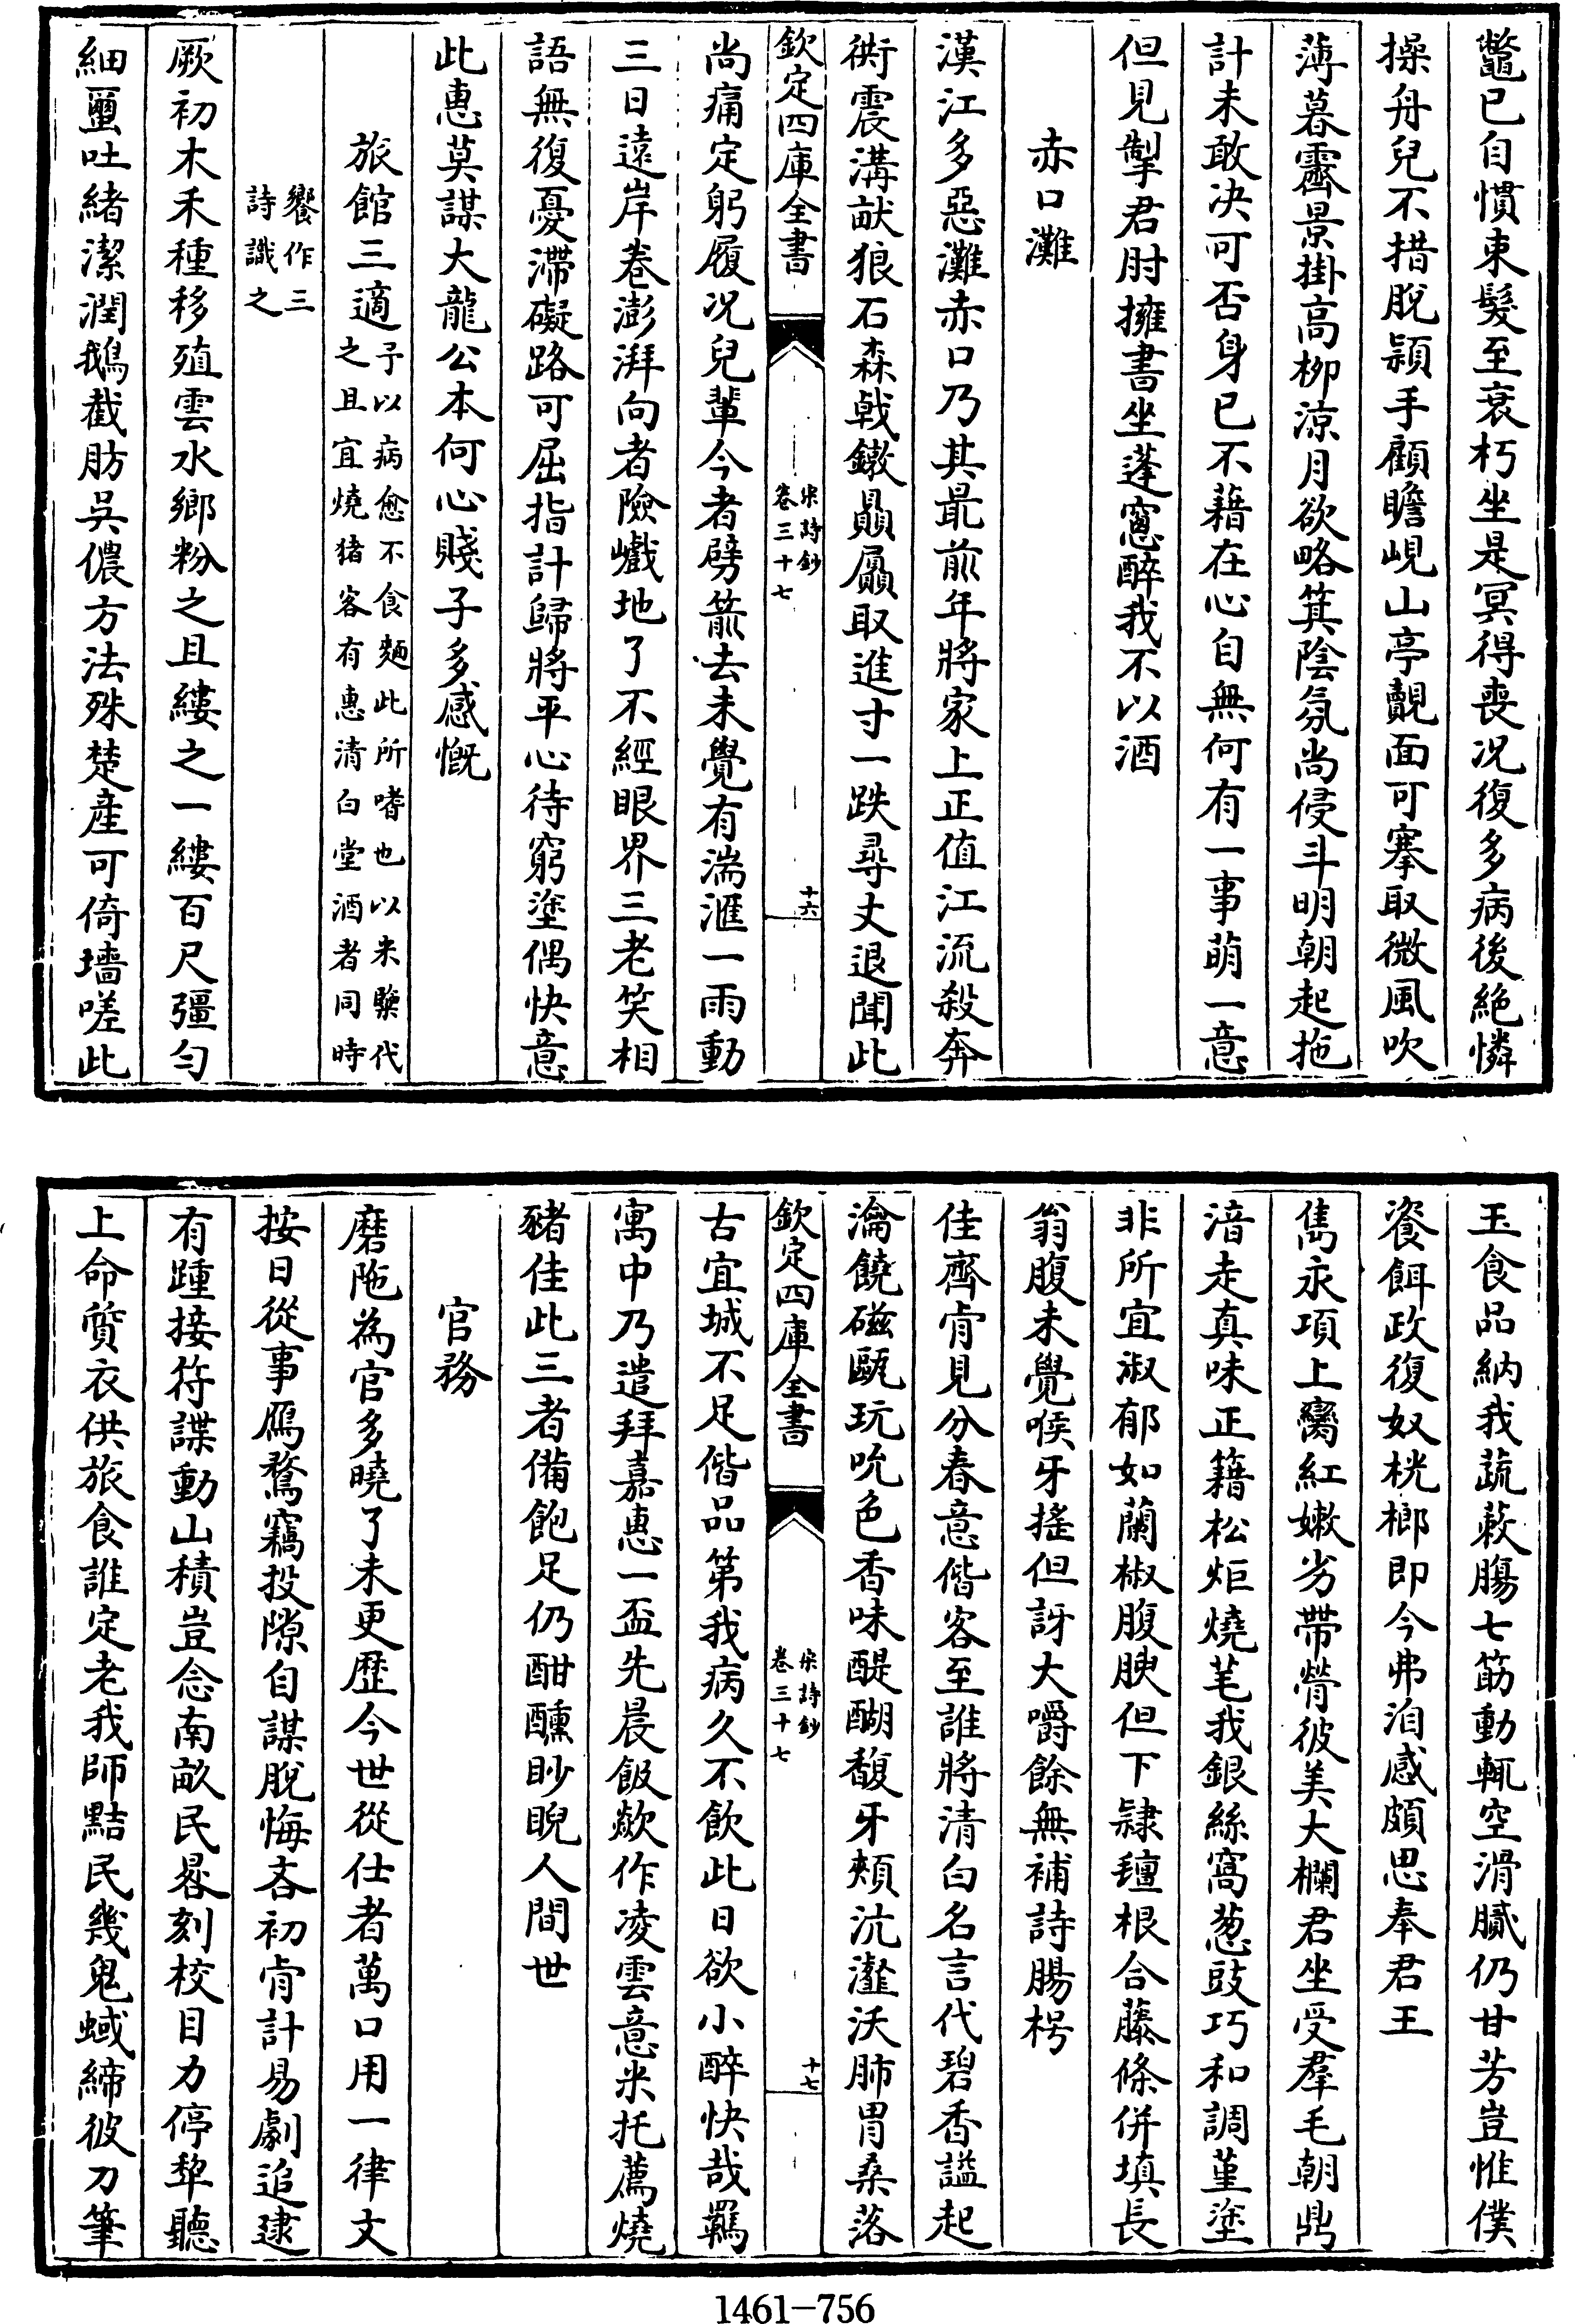 鼈已自慣束髮至衰朽坐是冥得喪况復多病後絶憐
操舟兒不措脫頴手顧瞻峴山亭覿面可搴取微風吹
薄暮霽景掛高栁涼月欲略箕陰氛尚侵斗明朝起拖
計未敢决可否身已不藉在心自無何有一事萌一意
但見掣君肘擁書坐蓬窻醉我不以酒
赤口灘
漢江多惡灘赤口乃其最前年將家上正值江流殺奔
衝震溝畎狼石森㦸鐓贔屭取進寸一跌尋丈退聞此
欽定四庫全書
宋詩鈔
卷三十七
十六
尚痛定躬履况兒軰今者劈箭去未覺有湍滙一雨動
三日遠岸卷澎湃向者險巇地了不經眼界三老笑相
語無復憂滯礙路可屈指計歸將平心待窮塗偶快意
此惠莫謀大龍公本何心賤子多感慨
旅館三適予以病愈不食麵此所嗜也以米櫱代
之且宜燒猪客有惠清白堂酒者同時
饗作三
詩識之
厥初木禾種移殖雲水鄉粉之且縷之一縷百尺彊勻
細蠒吐緒潔潤鵝截肪吳儂方法殊楚産可倚墻嗟此
玉食品納我蔬蔌腸七筯動輒空滑膩仍甘芳豈惟僕
餈餌政復奴桄榔即今弗洎感頗思奉君王
雋永項上臠紅嫰劣帶膋彼美大欄君坐受羣毛朝鼎
湆走真味正籍松炬燒芼我銀絲窩葱豉巧和調堇塗
非所宜淑郁如蘭椒腹腴但下隷䵏根合藤條併填長
翁腹未覺喉牙搖但訝大嚼餘無補詩腸枵
佳齊肯見分春意偕客至誰將清白名言代碧香謚起
瀹饒磁甌玩吮色香味醍醐馥牙頰沆瀣沃肺胃桑落
欽定四庫全書
宋詩鈔
卷三十七
十七
古宜城不足偕品第我病久不飲此日欲小醉快哉羈
寓中乃遣拜嘉惠一盃先晨飯歘作凌雲意米托薦燒
豬佳此三者備飽足仍酣醺眇睨人間世
官務
磨陁為官多曉了未更歴今世從仕者萬口用一律文
按日從事鴈鶩竊投隙自謀脫悔吝初肯計易劇追逮
有踵接符諜動山積豈念南畝民晷刻校目力停犂聽
上命質衣供旅食誰定老我師黠民幾鬼蜮締彼刀筆
1461-756